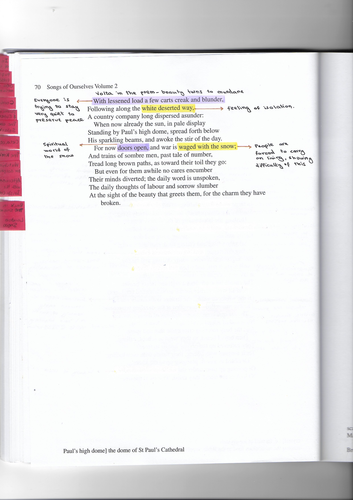 70 Songs of Ourselves Volume 2
Volta in the poem - beauty turns to mundane
Everyone is
trying to stay
very quiet to
preserve peace
With lessened load a few carts creak and blunder,
Following along the white deserted way,
feeling of isolation.
A country company long dispersed asunder:
When now already the sun, in pale display
Standing by Paul's high dome, spread forth below
His sparkling beams, and awoke the stir of the day.
Spiritual
world of
the snow
For now doors open, and war is waged with the snow;
People are
forced to carry
on living, showing
difficulty of this
And trains of sombre men, past tale of number,
Tread long brown paths, as toward their toil they go:
But even for them awhile no cares encumber
Their minds diverted; the daily word is unspoken,
The daily thoughts of labour and sorrow slumber
At the sight of the beauty that greets them, for the charm they have
broken.
Paul's high dome] the dome of St Paul's Cathedral